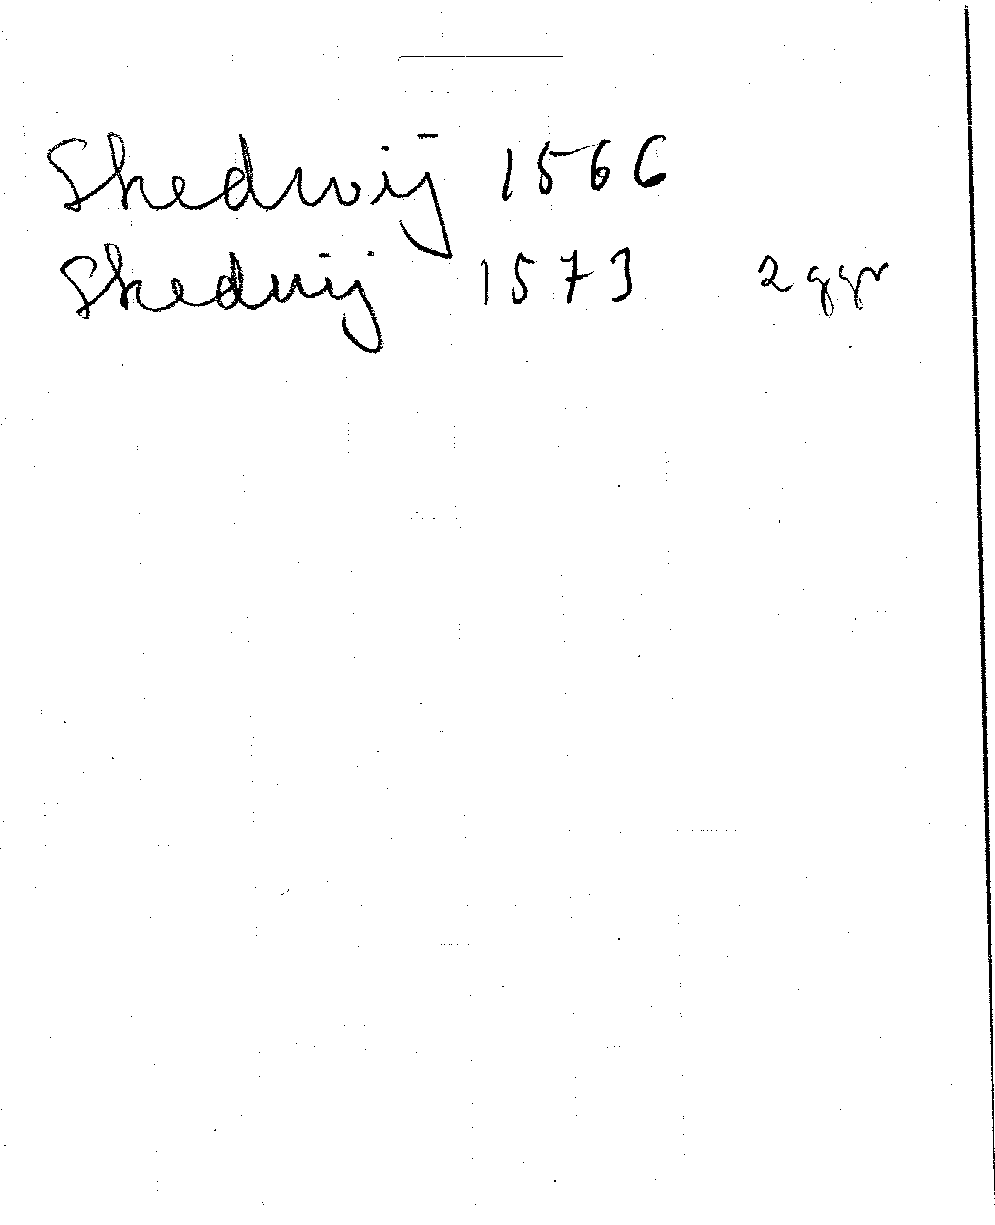 Skedwij 1566
Skedwij 1573 2 ggr